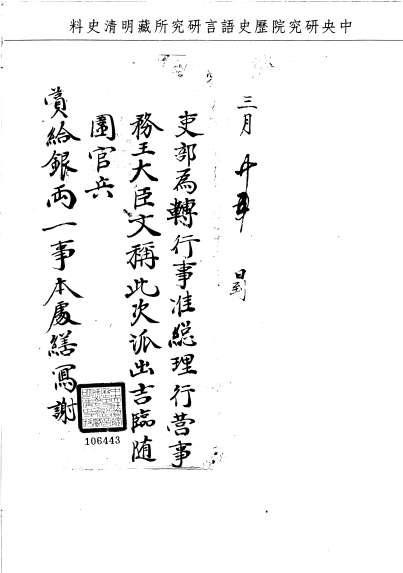 中央研究院歷史語言研究所藏明清史料
三月 廿五 日到
吏部為轉行事准総理行营事
務王大臣文稱此次派出吉臨随
圍官兵
賞給銀両一事本處繕寫謝
106443